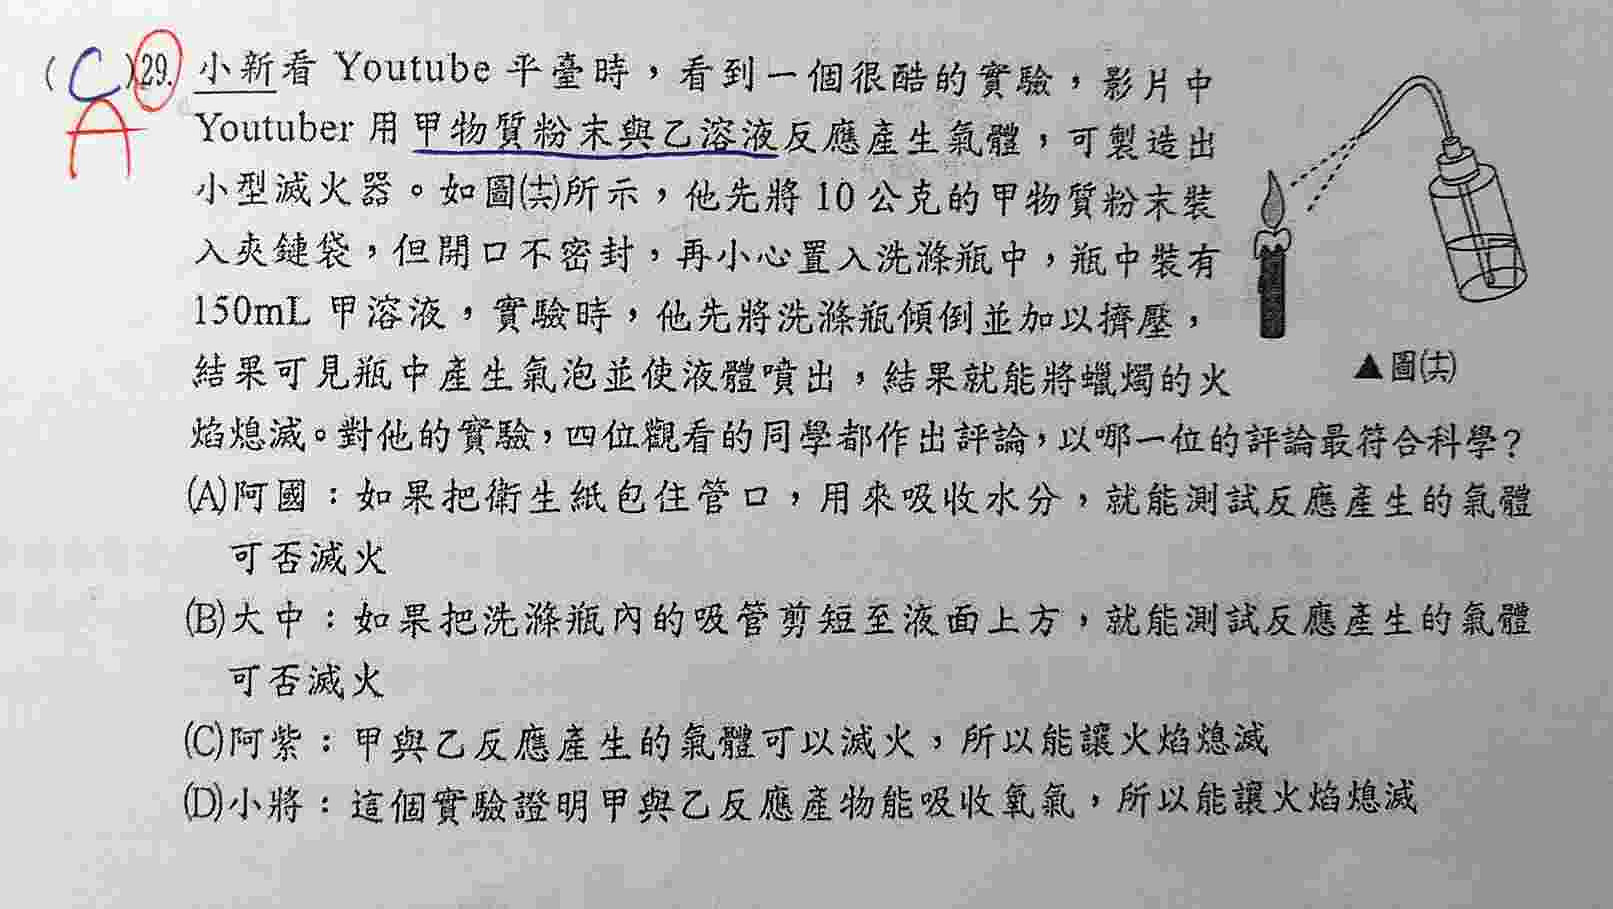 ( C )29. 小新看 Youtube 平臺時，看到一個很酷的實驗，影片中
A
Youtuber 用甲物質粉末與乙溶液反應產生氣體，可製造出
小型滅火器。如圖(十六)所示，他先將 10 公克的甲物質粉末裝
入夾鏈袋，但開口不密封，再小心置入洗滌瓶中，瓶中裝有
150mL 甲溶液，實驗時，他先將洗滌瓶傾倒並加以擠壓，
結果可見瓶中產生氣泡並使液體噴出，結果就能將蠟燭的火
焰熄滅。對他的實驗，四位觀看的同學都作出評論，以哪一位的評論最符合科學？
▲圖(十六)
(A)阿國：如果把衛生紙包住管口，用來吸收水分，就能測試反應產生的氣體
可否滅火
(B)大中：如果把洗滌瓶內的吸管剪短至液面上方，就能測試反應產生的氣體
可否滅火
(C)阿紫：甲與乙反應產生的氣體可以滅火，所以能讓火焰熄滅
(D)小將：這個實驗證明甲與乙反應產物能吸收氧氣，所以能讓火焰熄滅